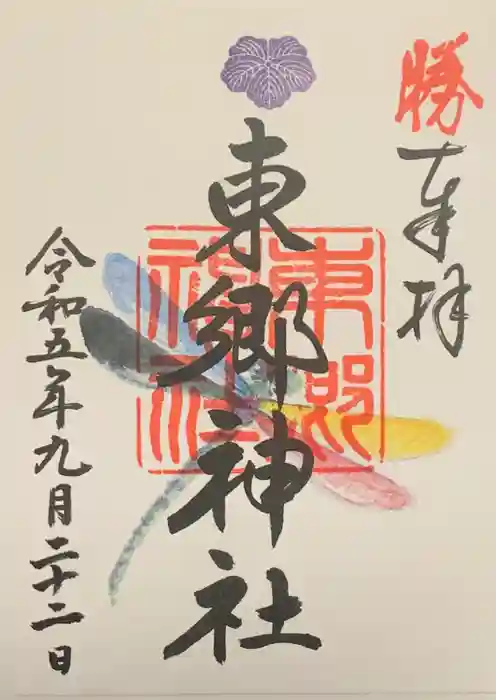 勝
奉拝
東郷神社
令和五年九月二十二日